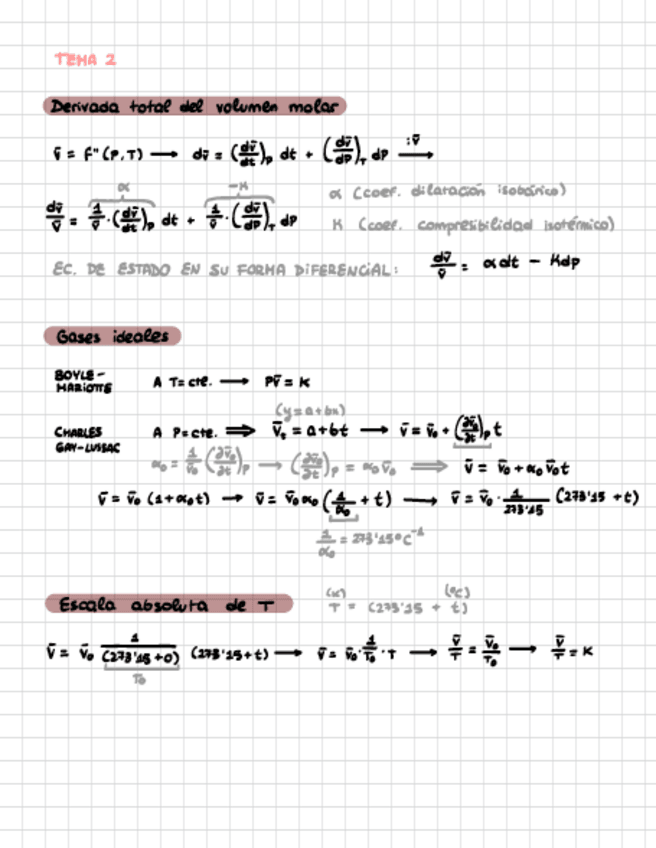 TEMA 2
Derivada total del volumen molar
v̄ = Fⁿ(P,T) → dv̄ = (dv̄/dt)p dt + (dv̄/dP)T dP :v̄ →
α −K
dv̄/v̄ = 1/v̄ · (dv̄/dt)p dt + 1/v̄ · (dv̄/dP)T dP
α (coef. dilatación isobárico)
K (coef. compresibilidad isotérmico)
EC. DE ESTADO EN SU FORMA DIFERENCIAL: dv̄/v̄ = αdt − Kdp
Gases ideales
BOYLE-
MARIOTTE A T=cte. → Pv̄ = K
(y=a+bx)
CHARLES A P=cte. ⟹ v̄t = a+bt → v̄ = v̄₀ + (∂v̄₀/∂t)p t
GAY-LUSSAC
α₀ = 1/v̄₀ (∂v̄₀/∂t)p → (∂v̄₀/∂t)p = α₀v̄₀ ⟹ v̄ = v̄₀+α₀v̄₀t
v̄ = v̄₀ (1+α₀t) → v̄ = v̄₀α₀ (1/α₀ + t) → v̄ = v̄₀ · 1/273'15 (273'15 + t)
1/α₀ = 273'15ºC⁻¹
Escala absoluta de T
(K) (ºC)
T = (273'15 + t)
v̄ = v̄₀ 1/(273'15+0) (273'15+t) → v̄ = v̄₀·1/T₀·T → v̄/T = v̄₀/T₀ → v̄/T = K
T₀